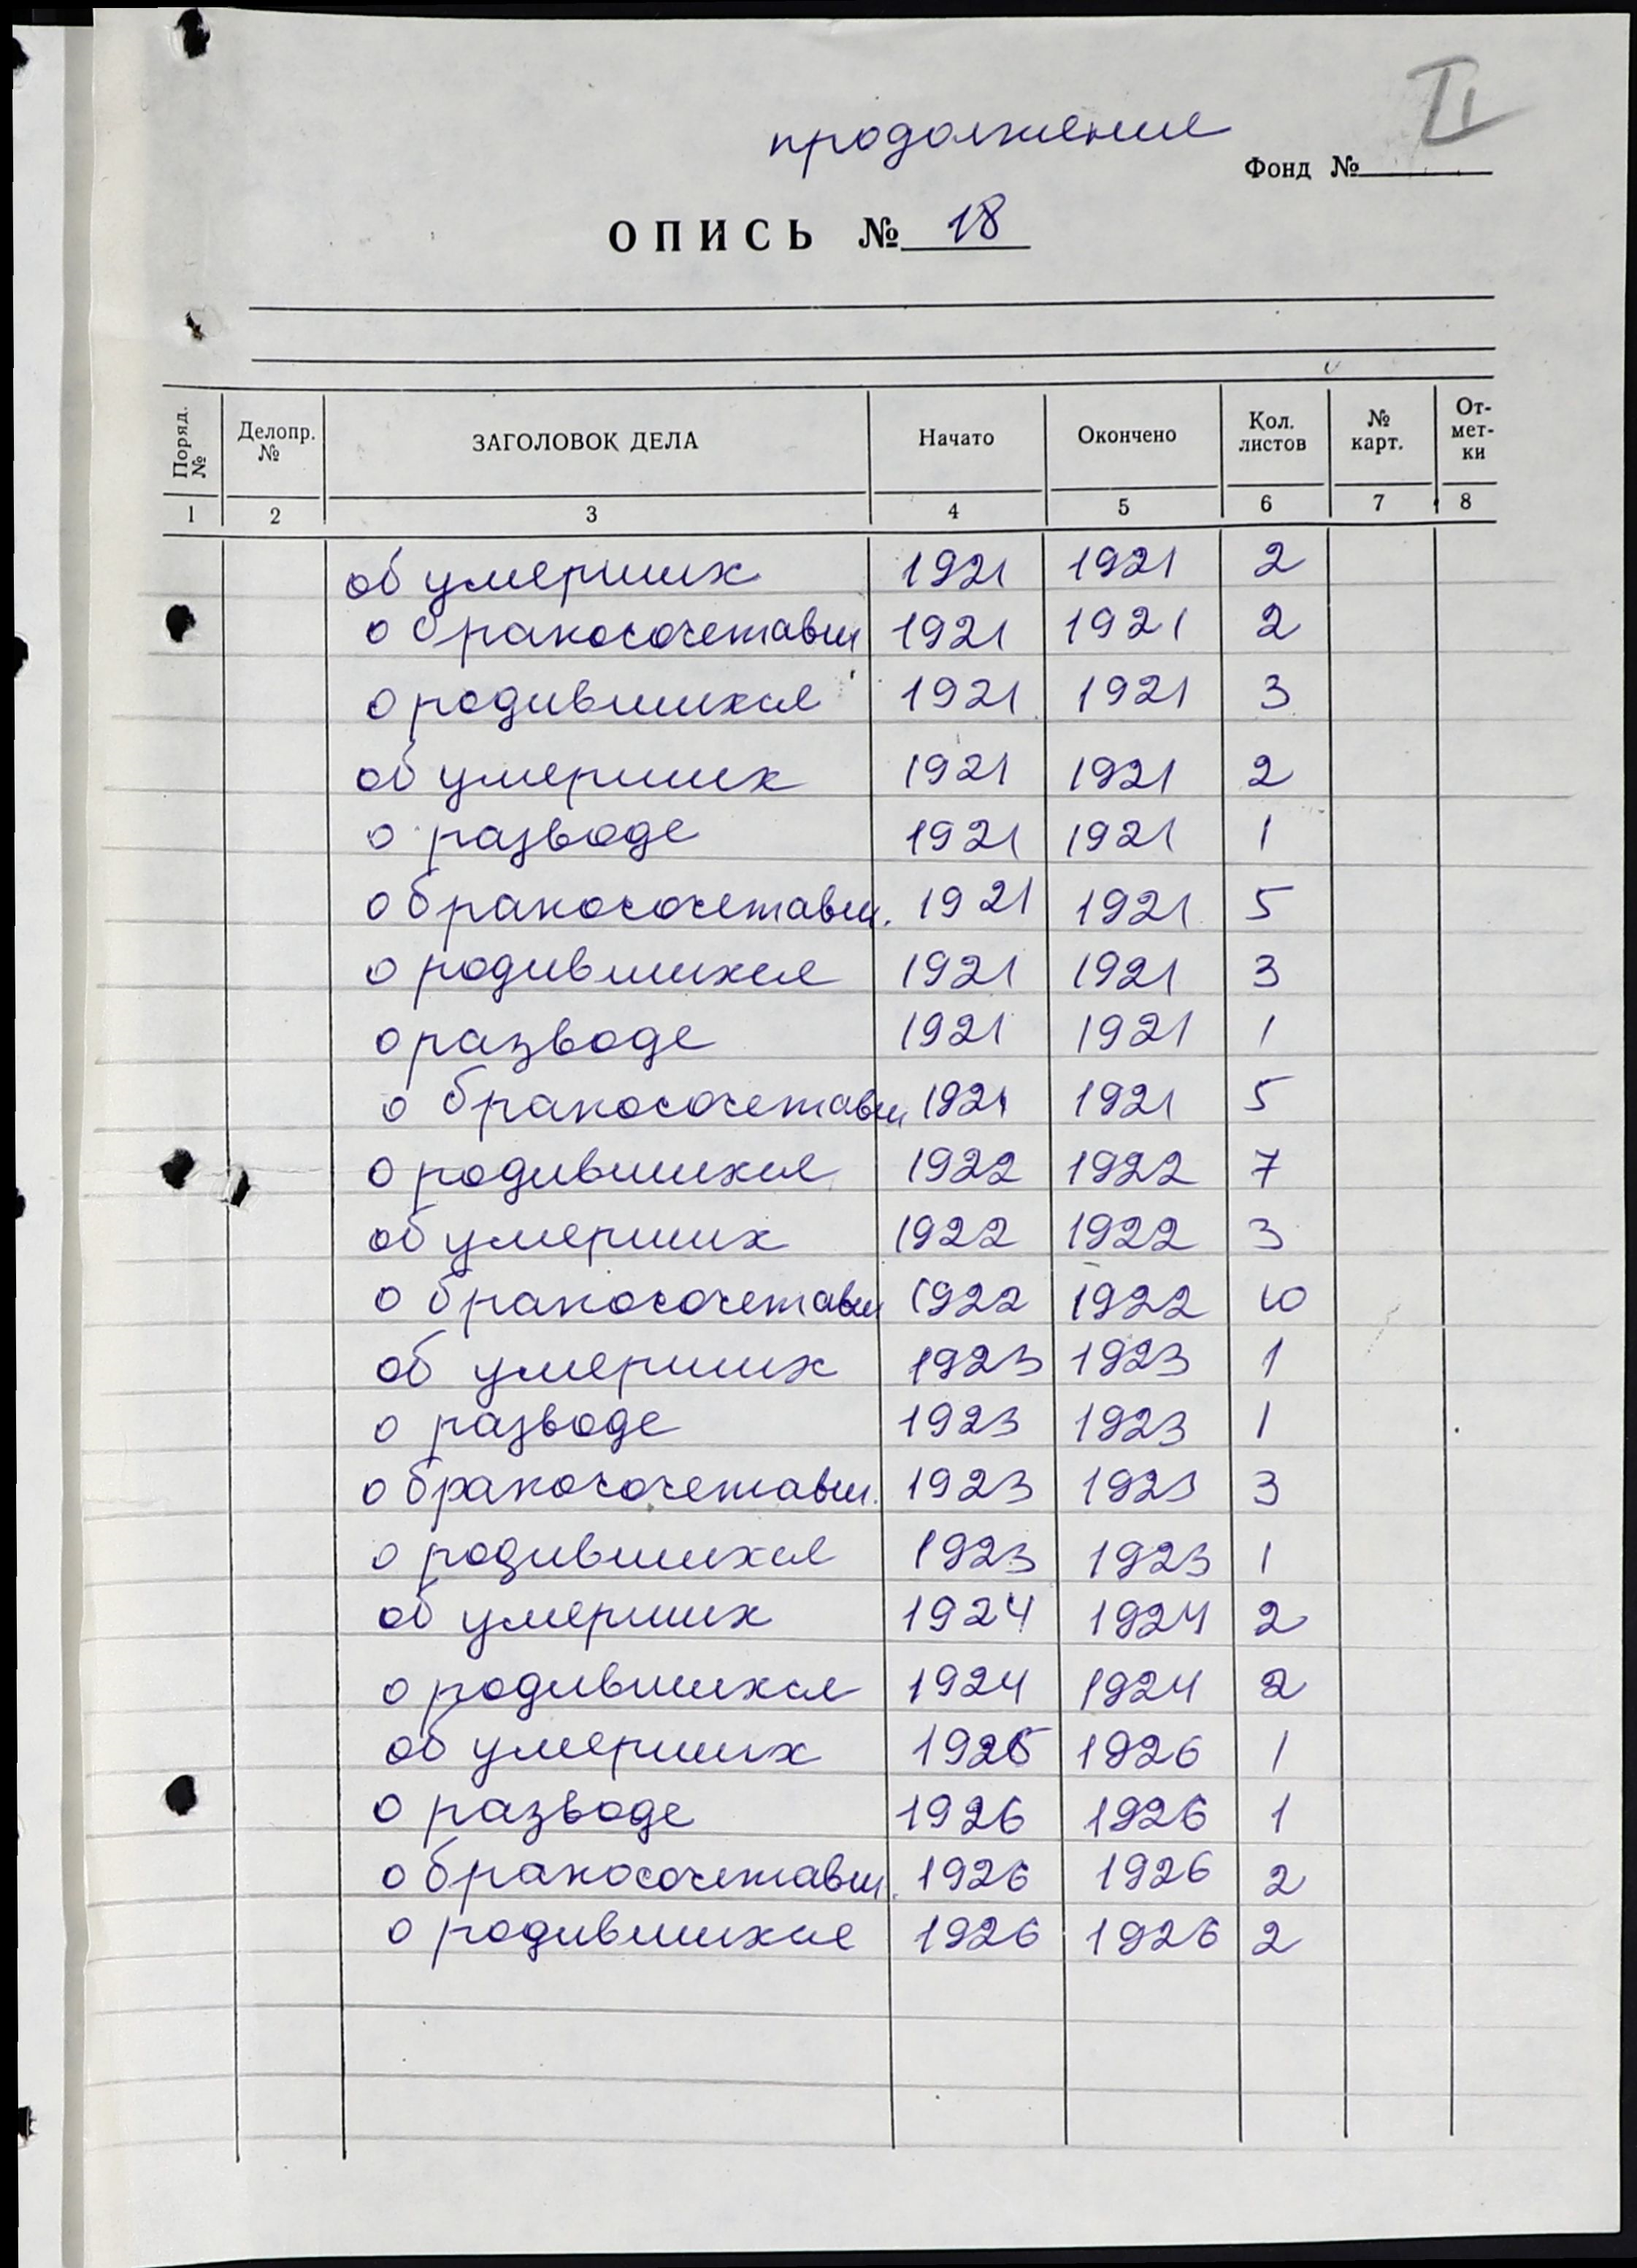 II
продолжение
Фонд №
ОПИСЬ № 18
Поряд. № Делопр. № ЗАГОЛОВОК ДЕЛА Начато Окончено Кол. листов № карт. От-мет-ки
1 2 3 4 5 6 7 8
об умерших 1921 1921 2
о бракосочетавш 1921 1921 2
о родившихся 1921 1921 3
об умерших 1921 1921 2
о разводе 1921 1921 1
о бракосочетавш. 1921 1921 5
о родившихся 1921 1921 3
о разводе 1921 1921 1
о бракосочетавш 1921 1921 5
о родившихся 1922 1922 7
об умерших 1922 1922 3
о бракосочетавш 1922 1922 10
об умерших 1923 1923 1
о разводе 1923 1923 1
о бракосочетавш. 1923 1923 3
о родившихся 1923 1923 1
об умерших 1924 1924 2
о родившихся 1924 1924 2
об умерших 1926 1926 1
о разводе 1926 1926 1
о бракосочетавш. 1926 1926 2
о родившихся 1926 1926 2